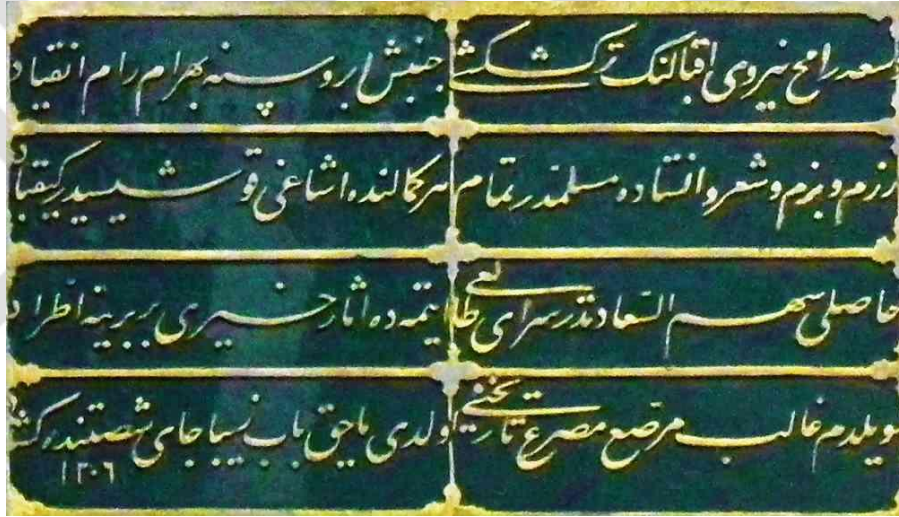 سعد رامح نيروى اقبالنك تركشكشى جنبش ابروسنه بهرام رام انقياد
رزم و بزم و شعر و انشاده مسلمدر تمام هر كمالنده اشاغى قوشيسيدر كيقباد
حاصلى سهم السعادتدر سراى طالعى ايتمه ده اثار خيرى بربرينه اطراد
سويلدم غالب مرصع مصرع تاريخنى اولدى ياجق باب نيسبا جاى شصتنده كشاد
١٢٠٦